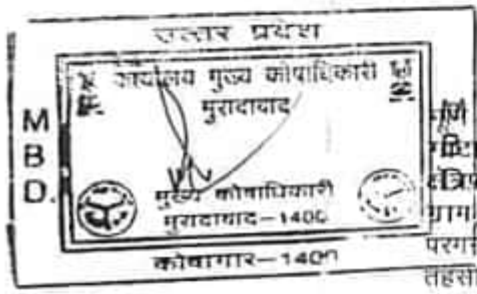 उत्तर प्रदेश
कार्यालय मुख्य कोषाधिकारी
मुरादाबाद
M
B
D.
मुख्य कोषाधिकारी
मुरादाबाद-1400
कोषागार-1400
ग्राम
परग
तहसी